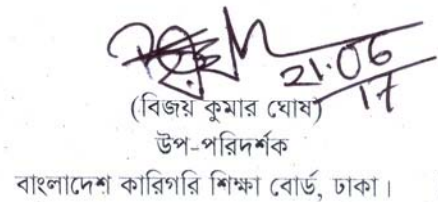 21.06
17
(বিজয় কুমার ঘোষ)
উপ-পরিদর্শক
বাংলাদেশ কারিগরি শিক্ষা বোর্ড, ঢাকা।